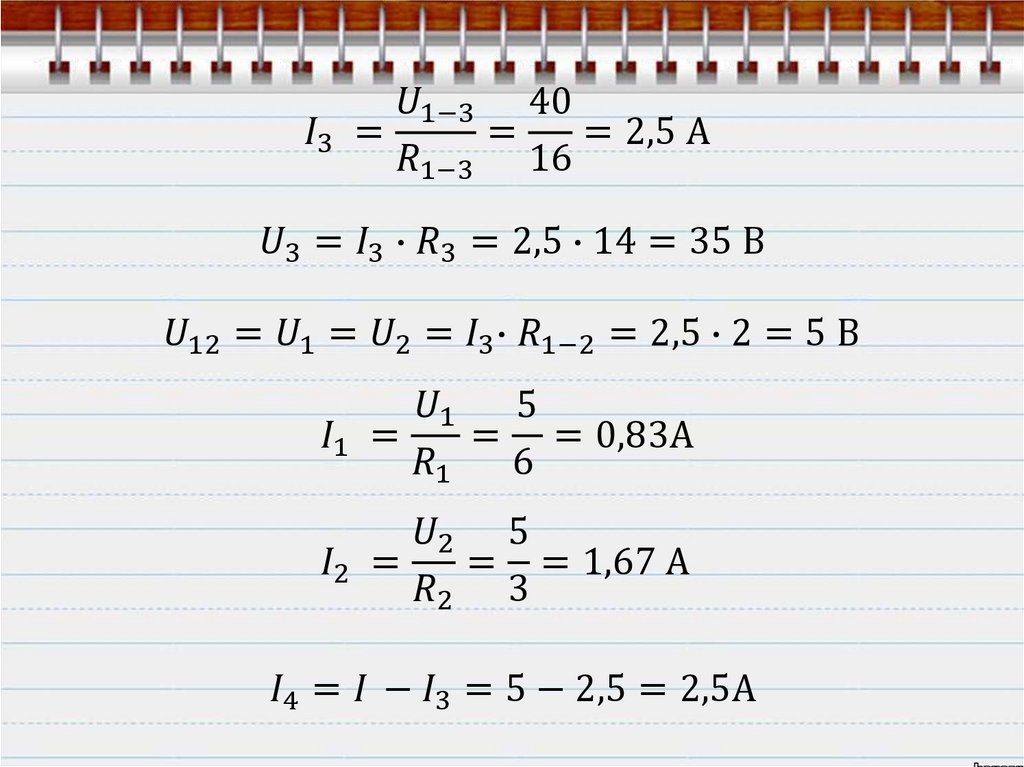 I₃ = U₁₋₃/R₁₋₃ = 40/16 = 2,5 А
U₃ = I₃ · R₃ = 2,5 · 14 = 35 В
U₁₂ = U₁ = U₂ = I₃· R₁₋₂ = 2,5 · 2 = 5 В
I₁ = U₁/R₁ = 5/6 = 0,83А
I₂ = U₂/R₂ = 5/3 = 1,67 А
I₄ = I − I₃ = 5 − 2,5 = 2,5А